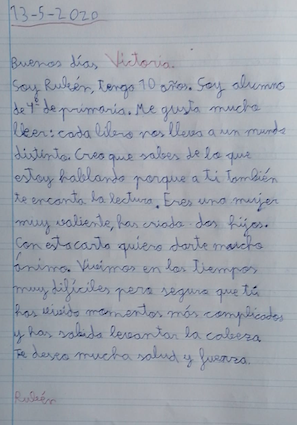 13-5-2020
Buenos días Victoria.
Soy Rubén, tengo 10 años. Soy alumno
de 4º de primaria. Me gusta mucho
leer: cada libro nos lleva a un mundo
distinto. Creo que sabes de lo que
estoy hablando porque a ti también
te encanta la lectura. Eres una mujer
muy valiente, has criado dos hijos.
Con esta carta quiero darte mucho
ánimo. Vivimos en los tiempos
muy difíciles pero seguro que tú
has vivido momentos más complicados
y has sabido levantar la cabeza
Te deseo mucha salud y fuerza.
Rubén